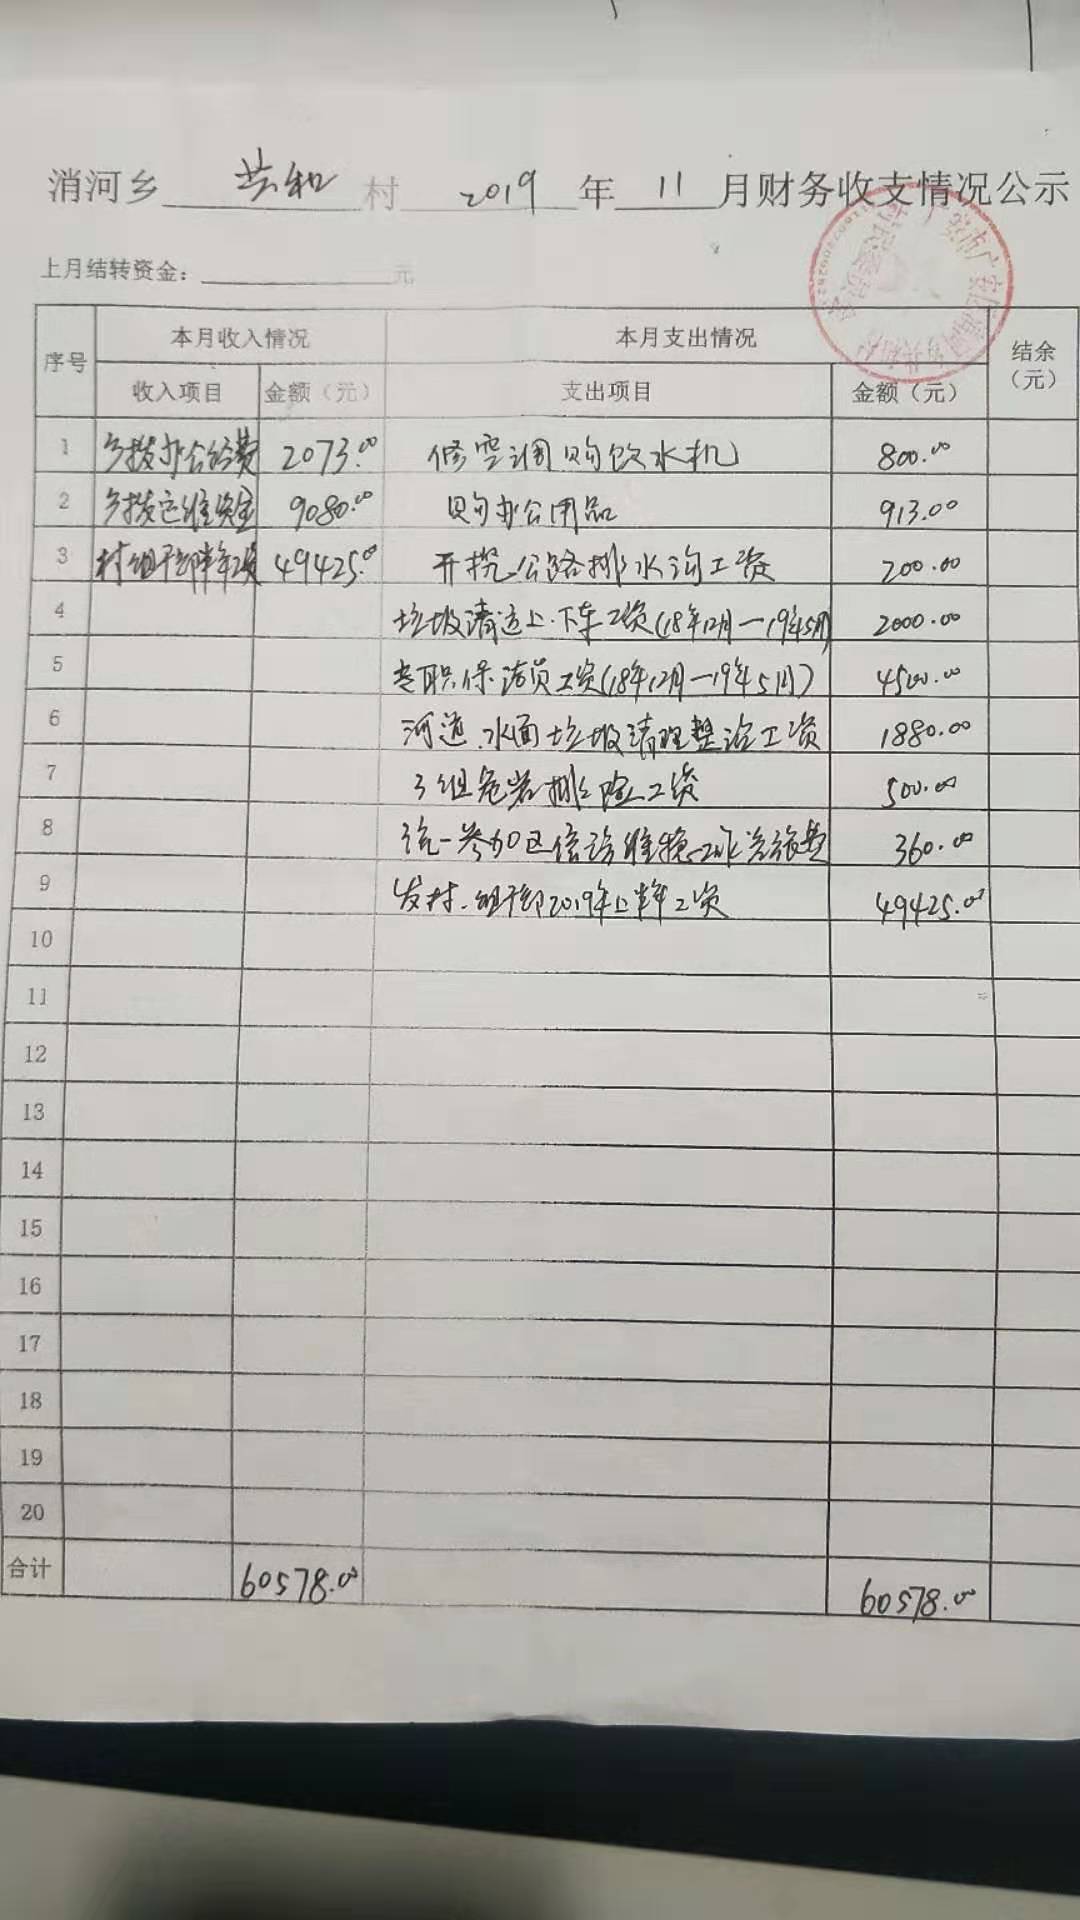 消河乡 共和 村 2019 年 11 月财务收支情况公示
上月结转资金： 元
序号 本月收入情况 本月支出情况 结余（元）
收入项目 金额（元） 支出项目 金额（元）
1 乡拨办公经费 2073.00 修空调购饮水机 800.00
2 乡拨运维资金 9080.00 购办公用品 913.00
3 村组干部半年工资 49425.00 开挖公路排水沟工资 200.00
4 垃圾清运上.下车工资(18年12月—19年5月) 2000.00
5 专职保洁员工资(18年12月—19年5月) 4500.00
6 河道.水面垃圾清理整治工资 1880.00
7 3组危岩排险工资 500.00
8 统一参加区信访维稳 旅费 360.00
9 发村.组干部2019年上半年工资 49425.00
10
11
12
13
14
15
16
17
18
19
20
合计 60578.00 60578.00